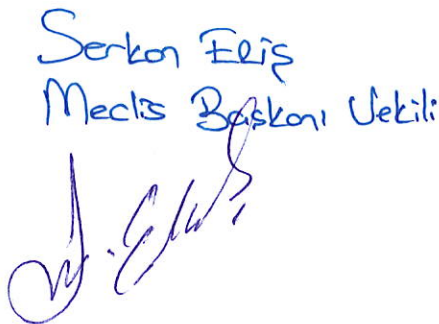 Serkan
Meclis Başkanı Vekili